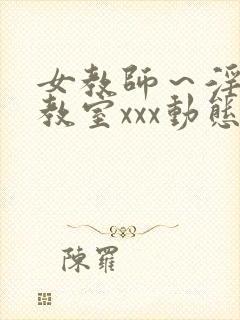 女教師～淫
教室xxx動態
陳羅